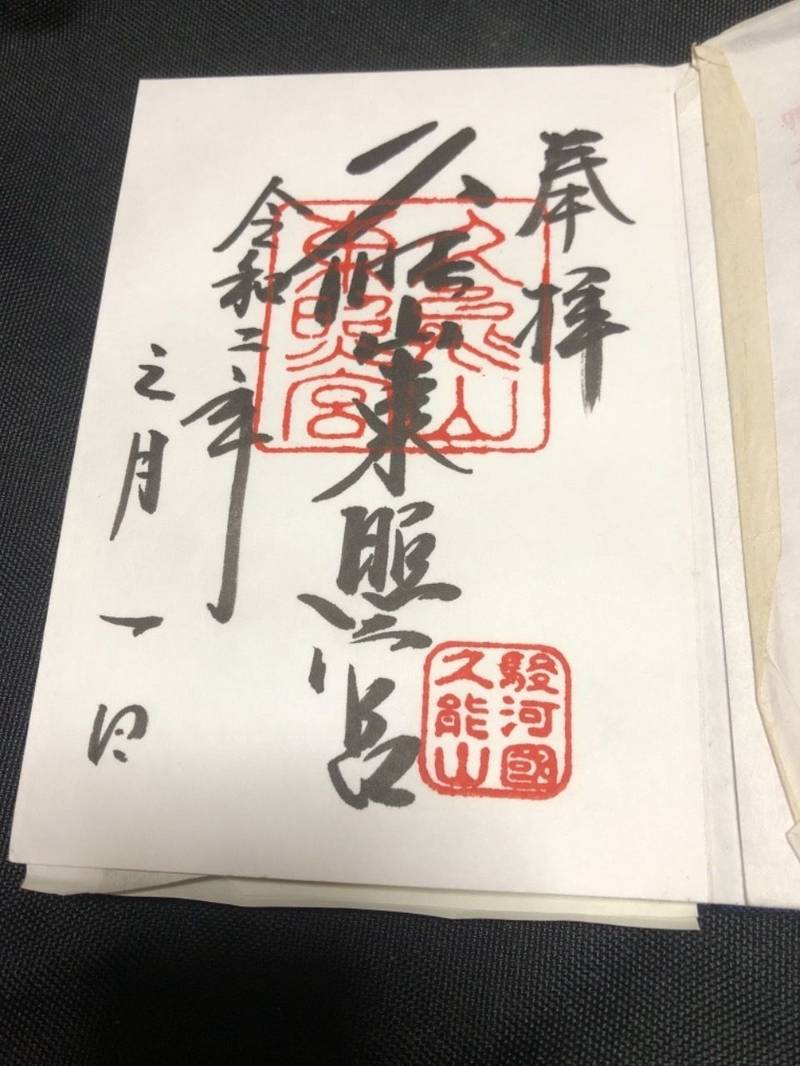 奉拝
久能山東照宮
久能山
東照宮
駿河國
久能山
令和二年
月一日